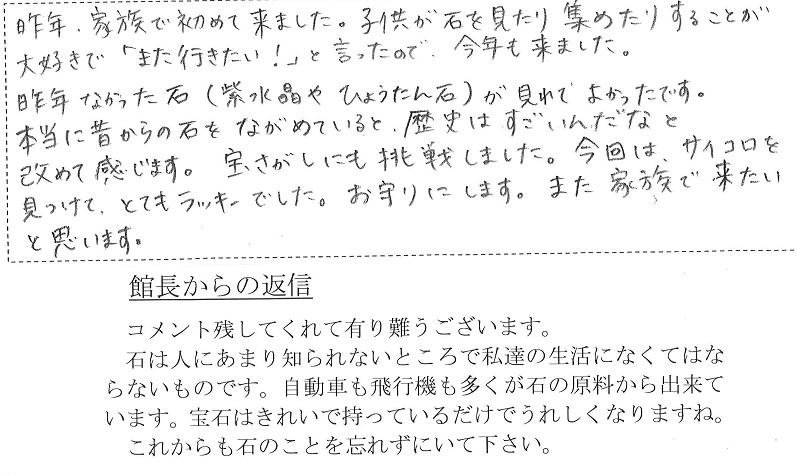 昨年、家族で初めて来ました。子供が石を見たり集めたりすることが
大好きで「また行きたい！」と言ったので、今年も来ました。
昨年なかった石（紫水晶やひょうたん石）が見れてよかったです。
本当に昔からの石をながめていると、歴史はすごいんだなと
改めて感じます。宝さがしにも挑戦しました。今回は、サイコロを
見つけて、とてもラッキーでした。お守りにします。また家族で来たい
と思います。
館長からの返信
コメント残してくれて有り難うございます。
石は人にあまり知られないところで私達の生活になくてはな
らないものです。自動車も飛行機も多くが石の原料から出来て
います。宝石はきれいで持っているだけでうれしくなりますね。
これからも石のことを忘れずにいて下さい。